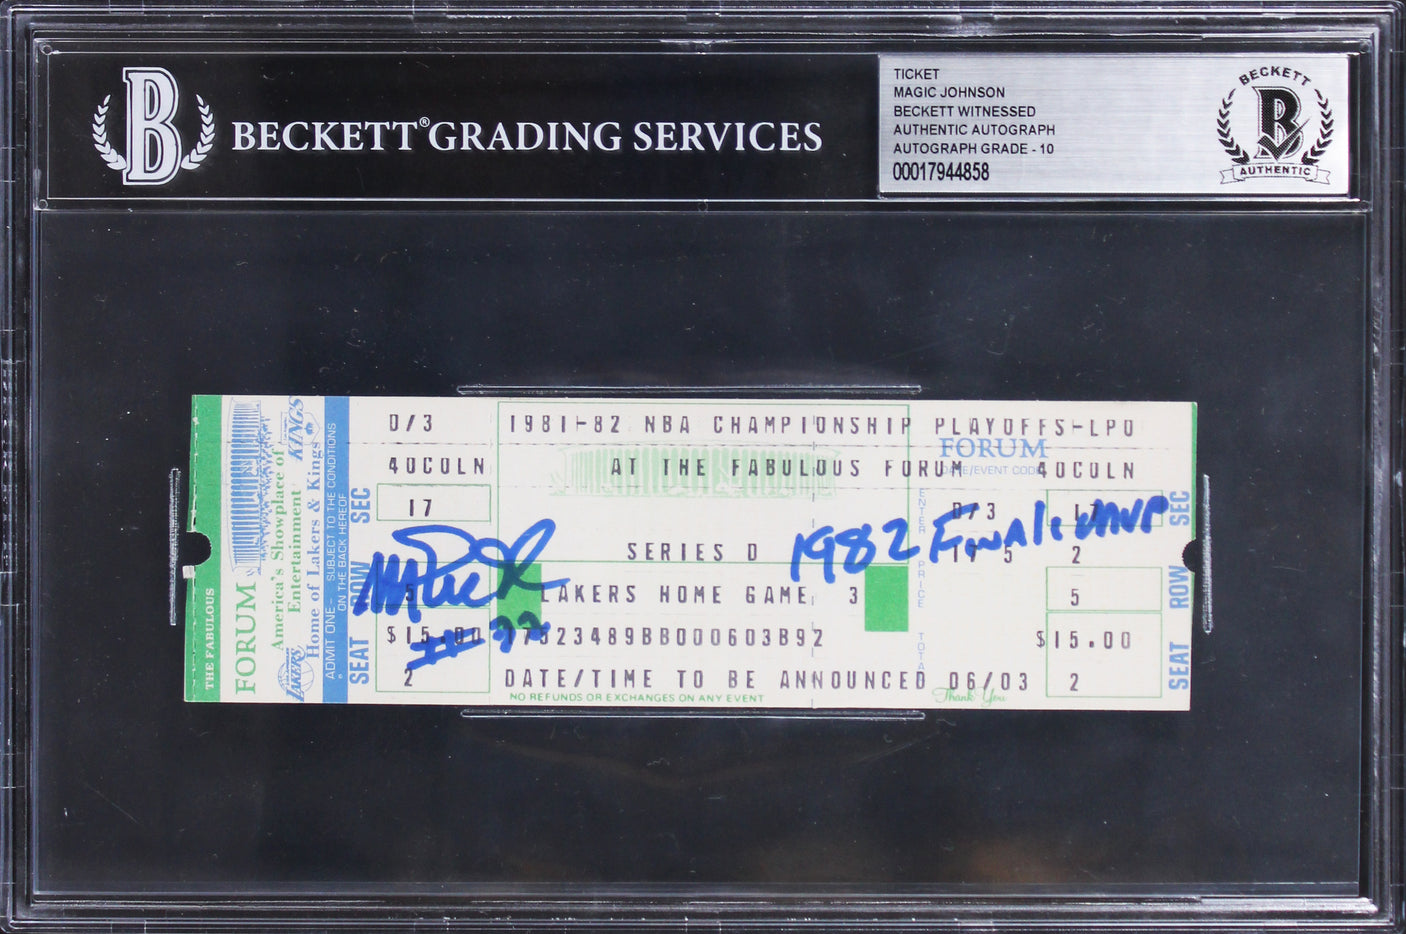 B
BECKETT® GRADING SERVICES
TICKET
MAGIC JOHNSON
BECKETT WITNESSED
AUTHENTIC AUTOGRAPH
AUTOGRAPH GRADE - 10
00017944858
BECKETT
B
AUTHENTIC
THE FABULOUS
FORUM
America's Showplace of
Entertainment
Home of Lakers & Kings
KINGS
LAKERS
ADMIT ONE– SUBJECT TO THE CONDITIONS
ON THE BACK HEREOF
SEAT ROW SEC
D/3
40COLN
17
5
$15.00
2
1981-82 NBA CHAMPIONSHIP PLAYOFFS-LPO
AT THE FABULOUS FORUM 40COLN
FORUM
DATE/EVENT CODE
D/3 17
SERIES D 17 5 2
LAKERS HOME GAME 3 5
17523489BB000603B92 $15.00
DATE/TIME TO BE ANNOUNCED 06/03 2
NO REFUNDS OR EXCHANGES ON ANY EVENT
Thank You
ENTER PRICE TOTAL
SEAT ROW SEC
#32
1982 Finals MVP